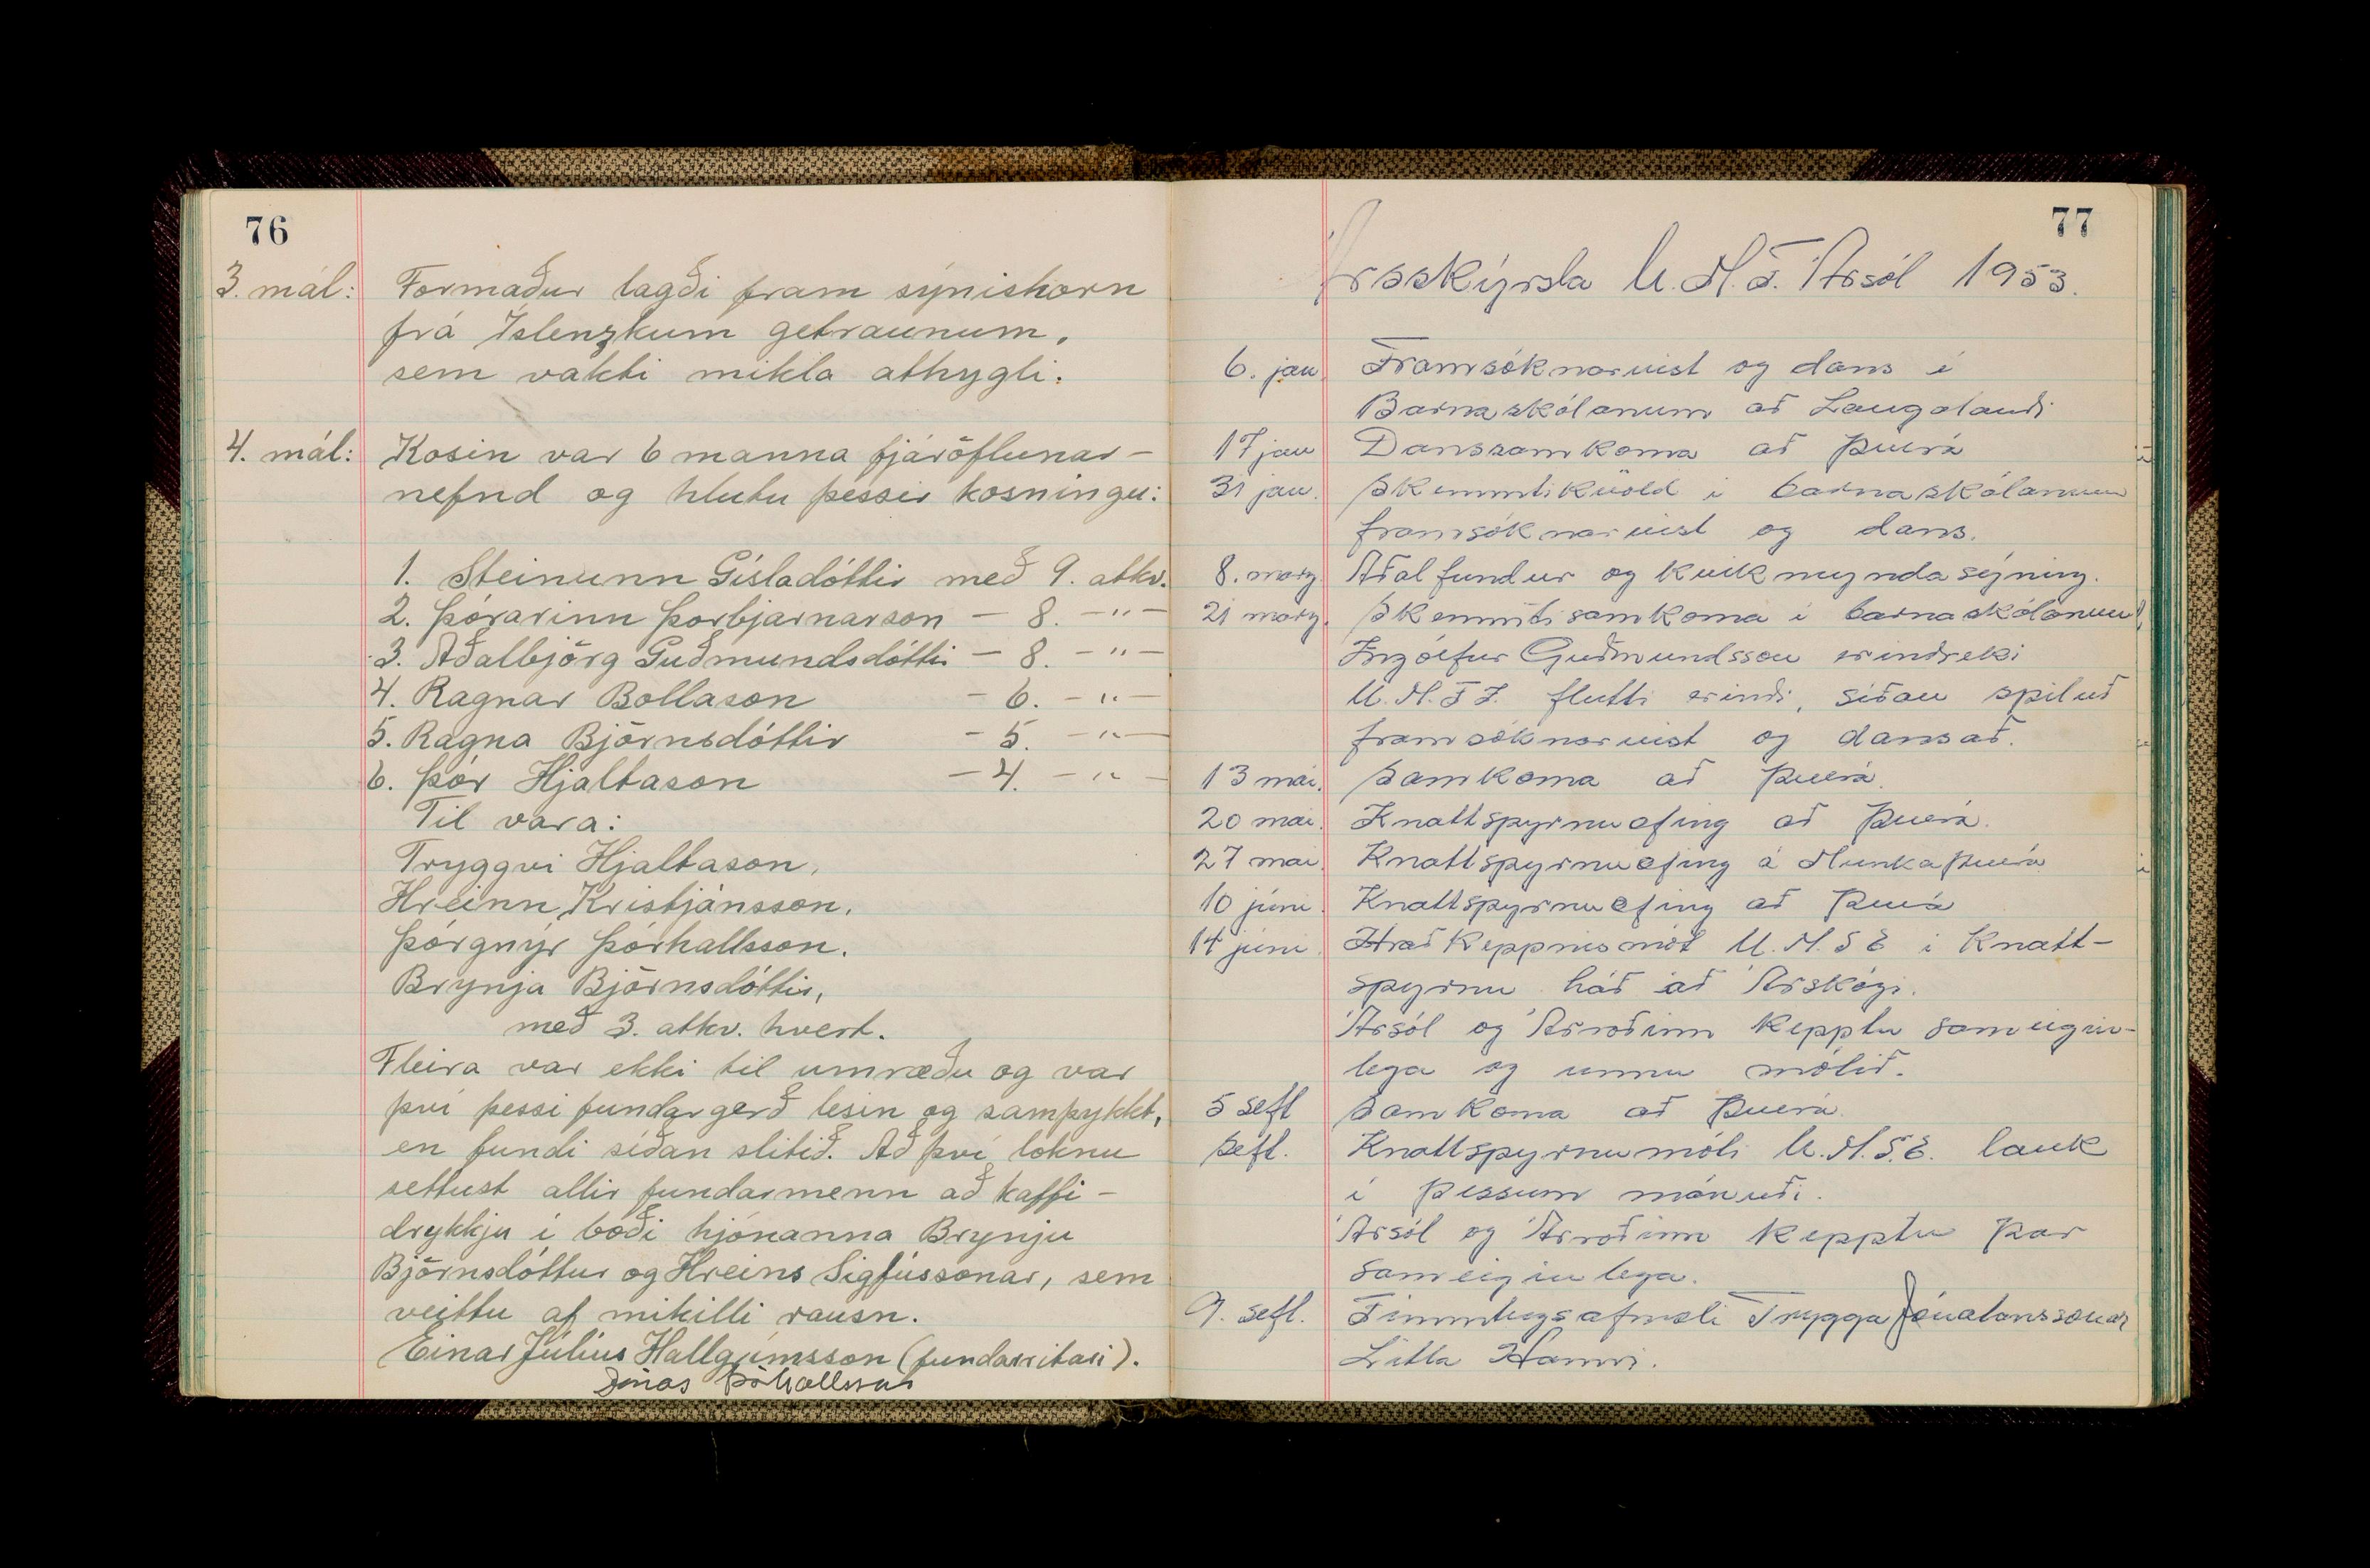 76
3. mál: Formaður lagði fram sýnishorn
frá Íslenzkum getraunum,
sem vakti mikla athygli.
4. mál: Kosin var 6 manna fjáröflunar-
nefnd og hlutu þessir kosningu:
1. Steinunn Gísladóttir með 9. atkv.
2. Þórarinn Þorbjarnarson — 8. —"—
3. Aðalbjörg Guðmundsdóttir — 8. —"—
4. Ragnar Bollason — 6. —"—
5. Ragna Björnsdóttir — 5. —"—
6. Þór Hjaltason — 4. —"—
Til vara:
Tryggvi Hjaltason,
Hreinn Kristjánsson.
Þórgnýr Þórhallsson.
Brynja Björnsdóttir,
með 3. atkv. hvert.
Fleira var ekki til umræðu og var
því þessi fundargerð lesin og samþykkt,
en fundi síðan slitið. Að því loknu
settust allir fundarmenn að kaffi-
drykkju í boði hjónanna Brynju
Björnsdóttur og Hreins Sigfússonar, sem
veittu af mikilli rausn.
Einar Júlíus Hallgrímsson (fundarritari).
Jónas Þórhallsson
77
Ársskýrsla U.M.F. Ársól 1953.
6. jan Framsóknarvist og dans í
Barnaskólanum að Laugalandi
17 jan Danssamkoma að Þverá
31 jan. Skemmtikvöld í barnaskólanum
framsóknarvist og dans.
8. marz Aðalfundur og kvikmyndasýning.
21 marz. Skemmtisamkoma í barnaskólanum,
Ingólfur Guðmundsson erindreki
U.M.F.Í. flutti erindi, síðan spiluð
framsóknarvist og dansað.
13 mai. Samkoma að Þverá.
20 mai. Knattspyrnuæfing að Þverá.
27 mai. Knattspyrnuæfing á Munkaþverá
10 júni. Knattspyrnuæfing að Þverá
14 júni. Hraðkeppnismót U.M.S E í Knatt-
spyrnu háð að Árskógi.
Ársól og Árroðinn kepptu sameigin-
lega og unnu mótið.
5 sept Samkoma að Þverá.
Sept. Knattspyrnumóti U.M.S.E. lauk
í þessum mánuði.
Ársól og Árroðinn kepptu þar
sameiginlega.
9. sept. Fimmtugsafmæli Tryggva Jónatanssonar
Litla Hamri.